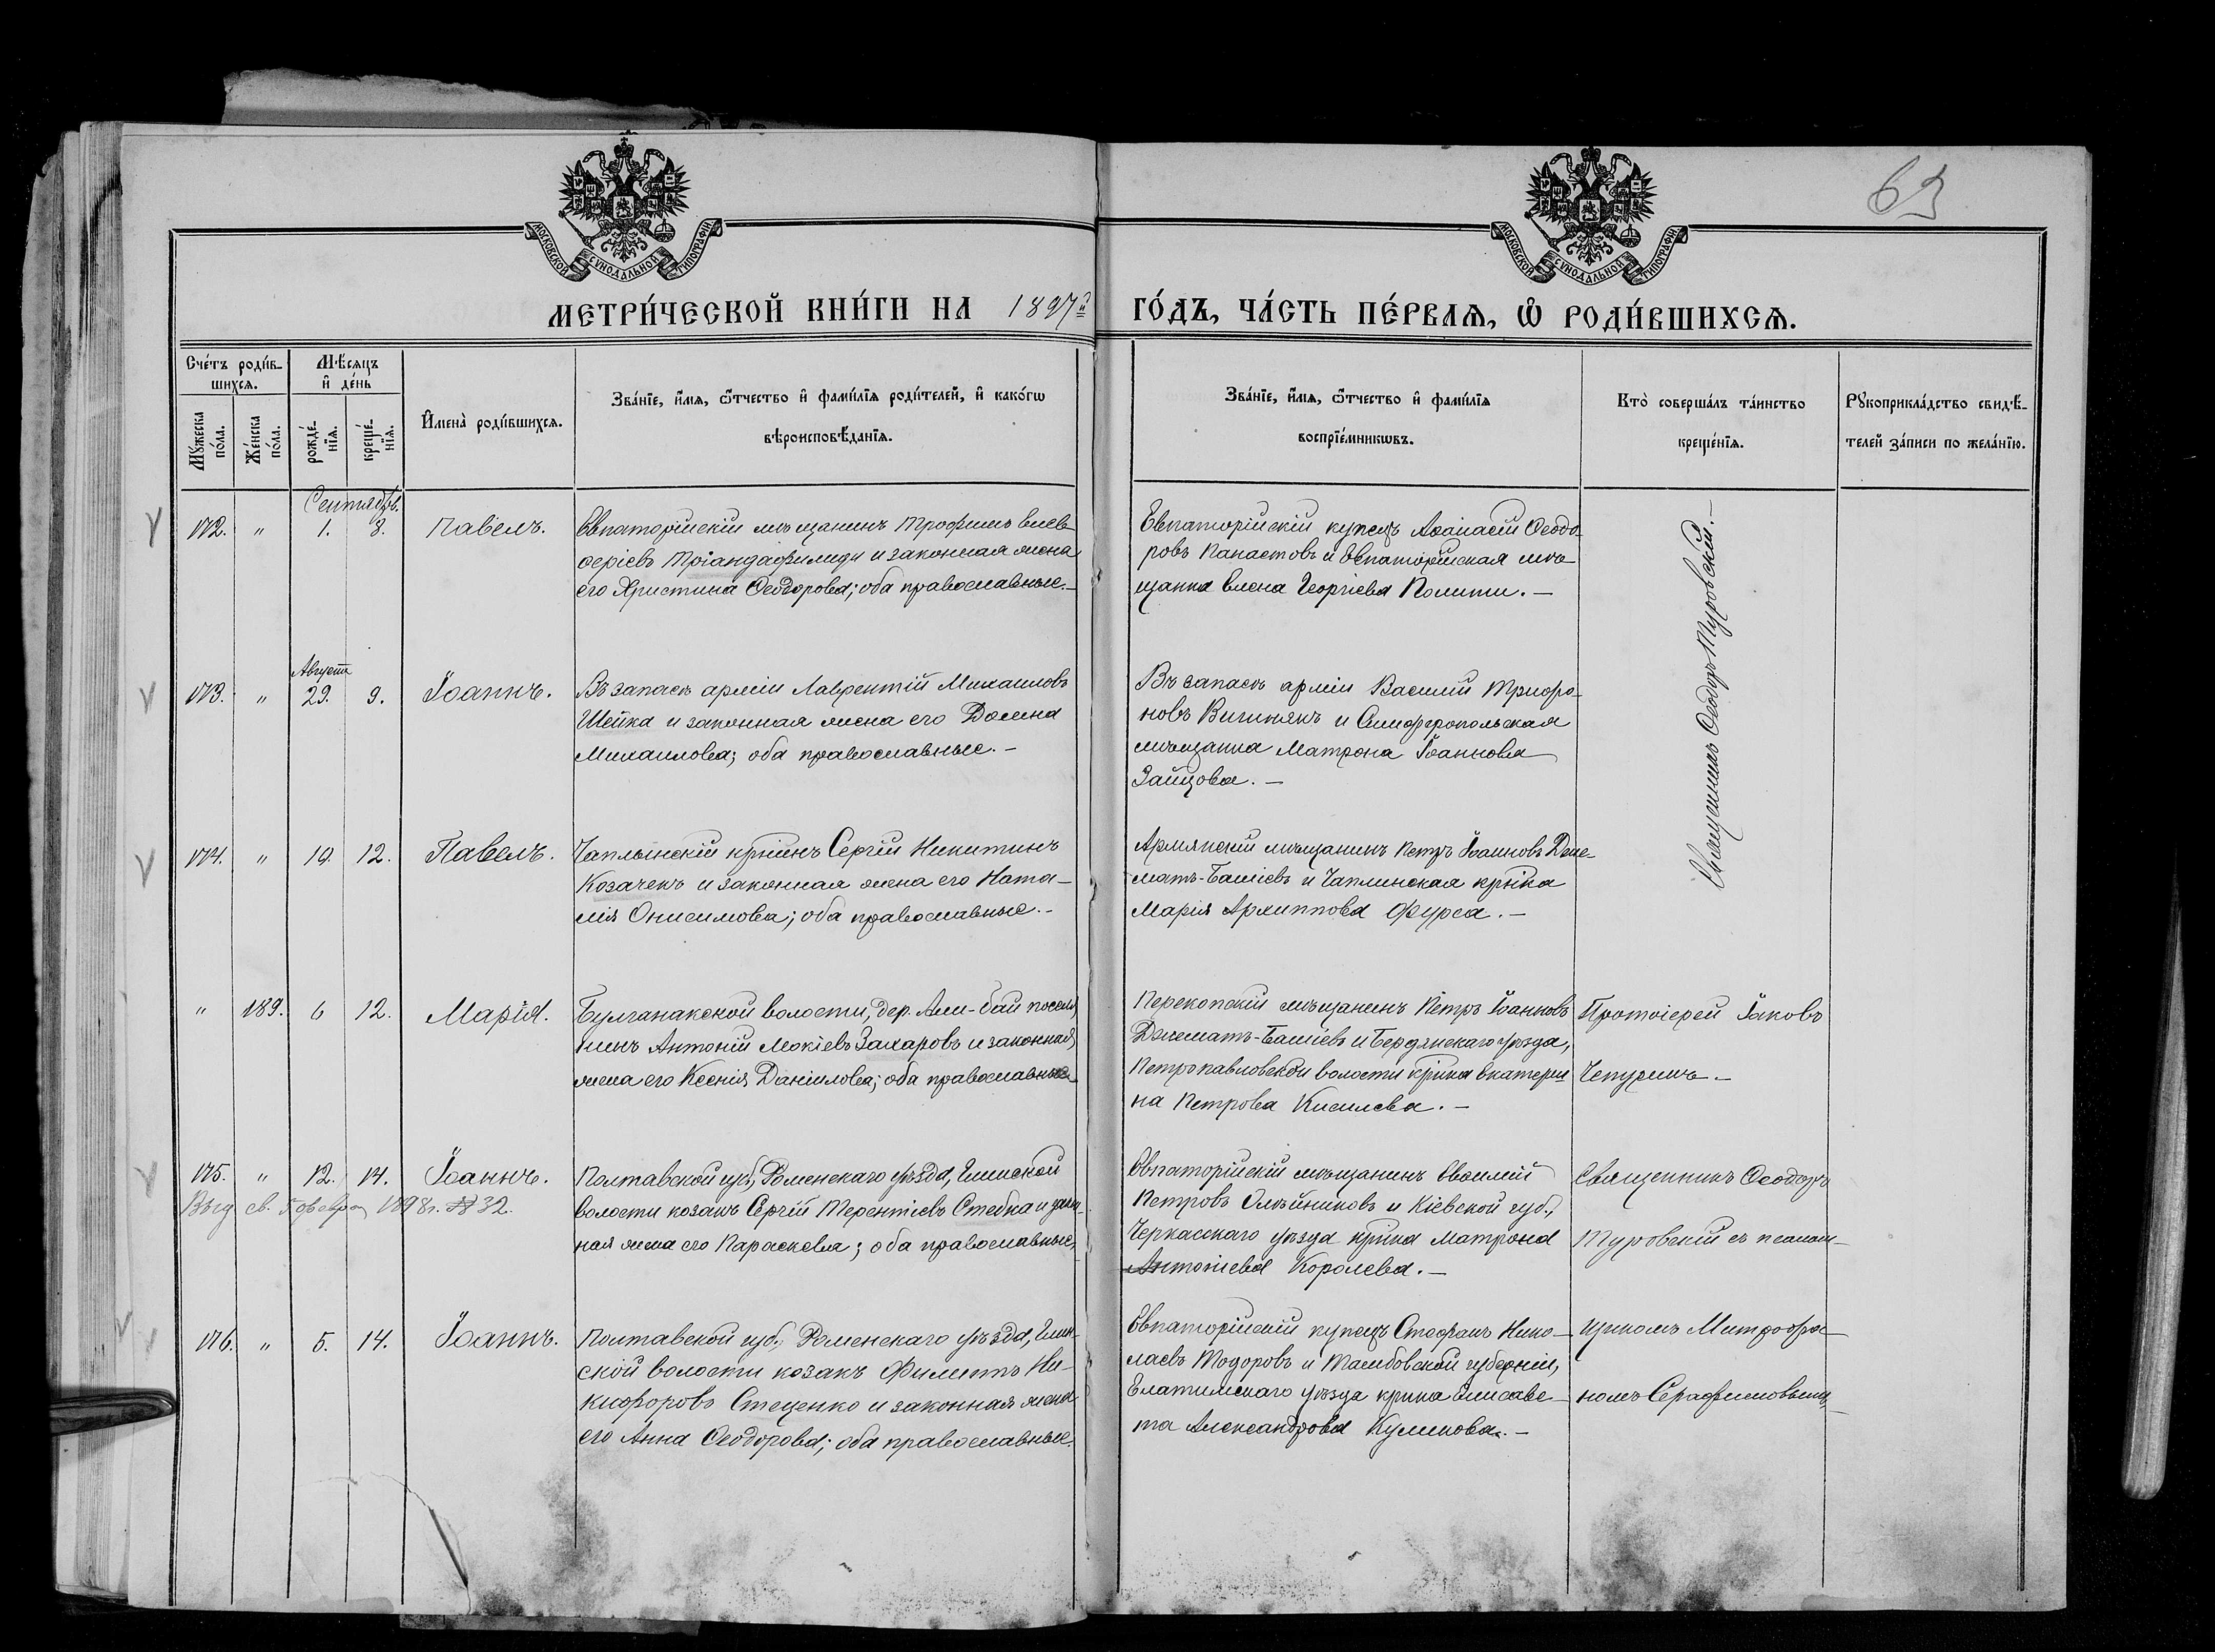 63
МОСКОВСКОЙ СѴНОДАЛЬНОЙ ТИПОГРАФІИ
МОСКОВСКОЙ СѴНОДАЛЬНОЙ ТИПОГРАФІИ
МЕТРИ́ЧЕСКОЙ КНИ́ГИ НА 1897й ГО́ДЪ, ЧА́СТЬ ПЕ́РВАѦ, Ѡ РОДИ́ВШИХСѦ.
Сче́тъ роди́в-
шихсѧ.
Мꙋ́жеска по́ла.
Же́нска по́ла.
Мѣ́сѧцъ
и҆ де́нь
рожде́-нїѧ.
креще́-нїѧ.
И҆мена̀ роди́вшихсѧ.
Зва́нїе, и҆́мѧ, ѻ҆́тчество и҆ фами́лїѧ роди́телей, и҆ како́гѡ
вѣроисповѣ́данїѧ.
Зва́нїе, и҆́мѧ, ѻ҆́тчество и҆ фами́лїѧ
воспрїе́мникѡвъ.
Кто̀ соверша́лъ та́инство
креще́нїѧ.
Рꙋкоприкла́дство свидѣ́-
телей за́писи по жела́нїю.
Сентябрь.
172. " 1. 8. Павелъ.
Евпаторійскій мѣщанинъ Трофимъ Елев-
феріевъ Тріандафилиди и законная жена
его Христина Ѳеодорова; оба православные.-
Евпаторійскій купецъ Аѳанасій Ѳеодо-
ровъ Панаетовъ и Евпаторійская мѣ-
щанка Елена Георгіева Полити. -
Священникъ Ѳеодоръ Туровскій. -
Августъ
173. " 29. 9. Іоаннъ.
Въ запасѣ арміи Лаврентій Михаиловъ
Шейка и законная жена его Домна
Михаилова; оба православные. -
Въ запасѣ арміи Василій Трифо-
новъ и Симферопольская
мѣщанка Матрона Іоаннова
Зайцова. -
174. " 10. 12. Павелъ.
Чаплынскій кр-инъ Сергій Никитинъ
Козаченъ и законная жена его Ната-
лія Онисимова; оба православные. -
Армянскій мѣщанинъ Петръ Іоанновъ Дже-
матъ-Башіевъ и Чаплинская кр-нка
Марія Архиппова Фурса. -
" 189. 6 12. Марія.
Булганакской волости, дер. Аши-бай поселя-
нинъ Антоній Мокіевъ Захаровъ и законная
жена его Ксенія Даніилова; оба православные
Перекопскій мѣщанинъ Петръ Іоанновъ
Джематъ-Башіевъ и Бердянскаго уѣзда,
Петропавловской волости кр-нка Екатери-
на Петрова Кисилева. -
Протоіерей Іаковъ
Чепуринъ. -
175. " 12. 14. Іоаннъ.
Выд св. 5 февра. 1898 г. № 32.
Полтавской губ., Роменскаго уѣзда, Глинской
волости козакъ Сергій Терентіевъ Стебка и закон-
ная жена его Параскева; оба православные.
Евпаторійскій мѣщанинъ Евѳимій
Петровъ Олейниковъ и Кіевской губ.,
Черкасскаго уѣзда кр-нка Матрона
Антоніева Королева. -
Священникъ Ѳеодоръ
Туровскій съ псалом-
176. " 5. 14. Іоаннъ.
Полтавской губ., Роменскаго уѣзда, Глин-
ской волости козакъ Филиппъ Ни-
кифоровъ Стеценко и законная жена
его Анна Ѳеодорова; оба православные.
Евпаторійскій купецъ Стефанъ Нико-
лаевъ Тодоровъ и Тамбовской губерніи,
Елатимскаго уѣзда кр-нка Елисаве-
та Александрова Куликова. -
щикомъ Митрофа-
номъ Серафимовымъ